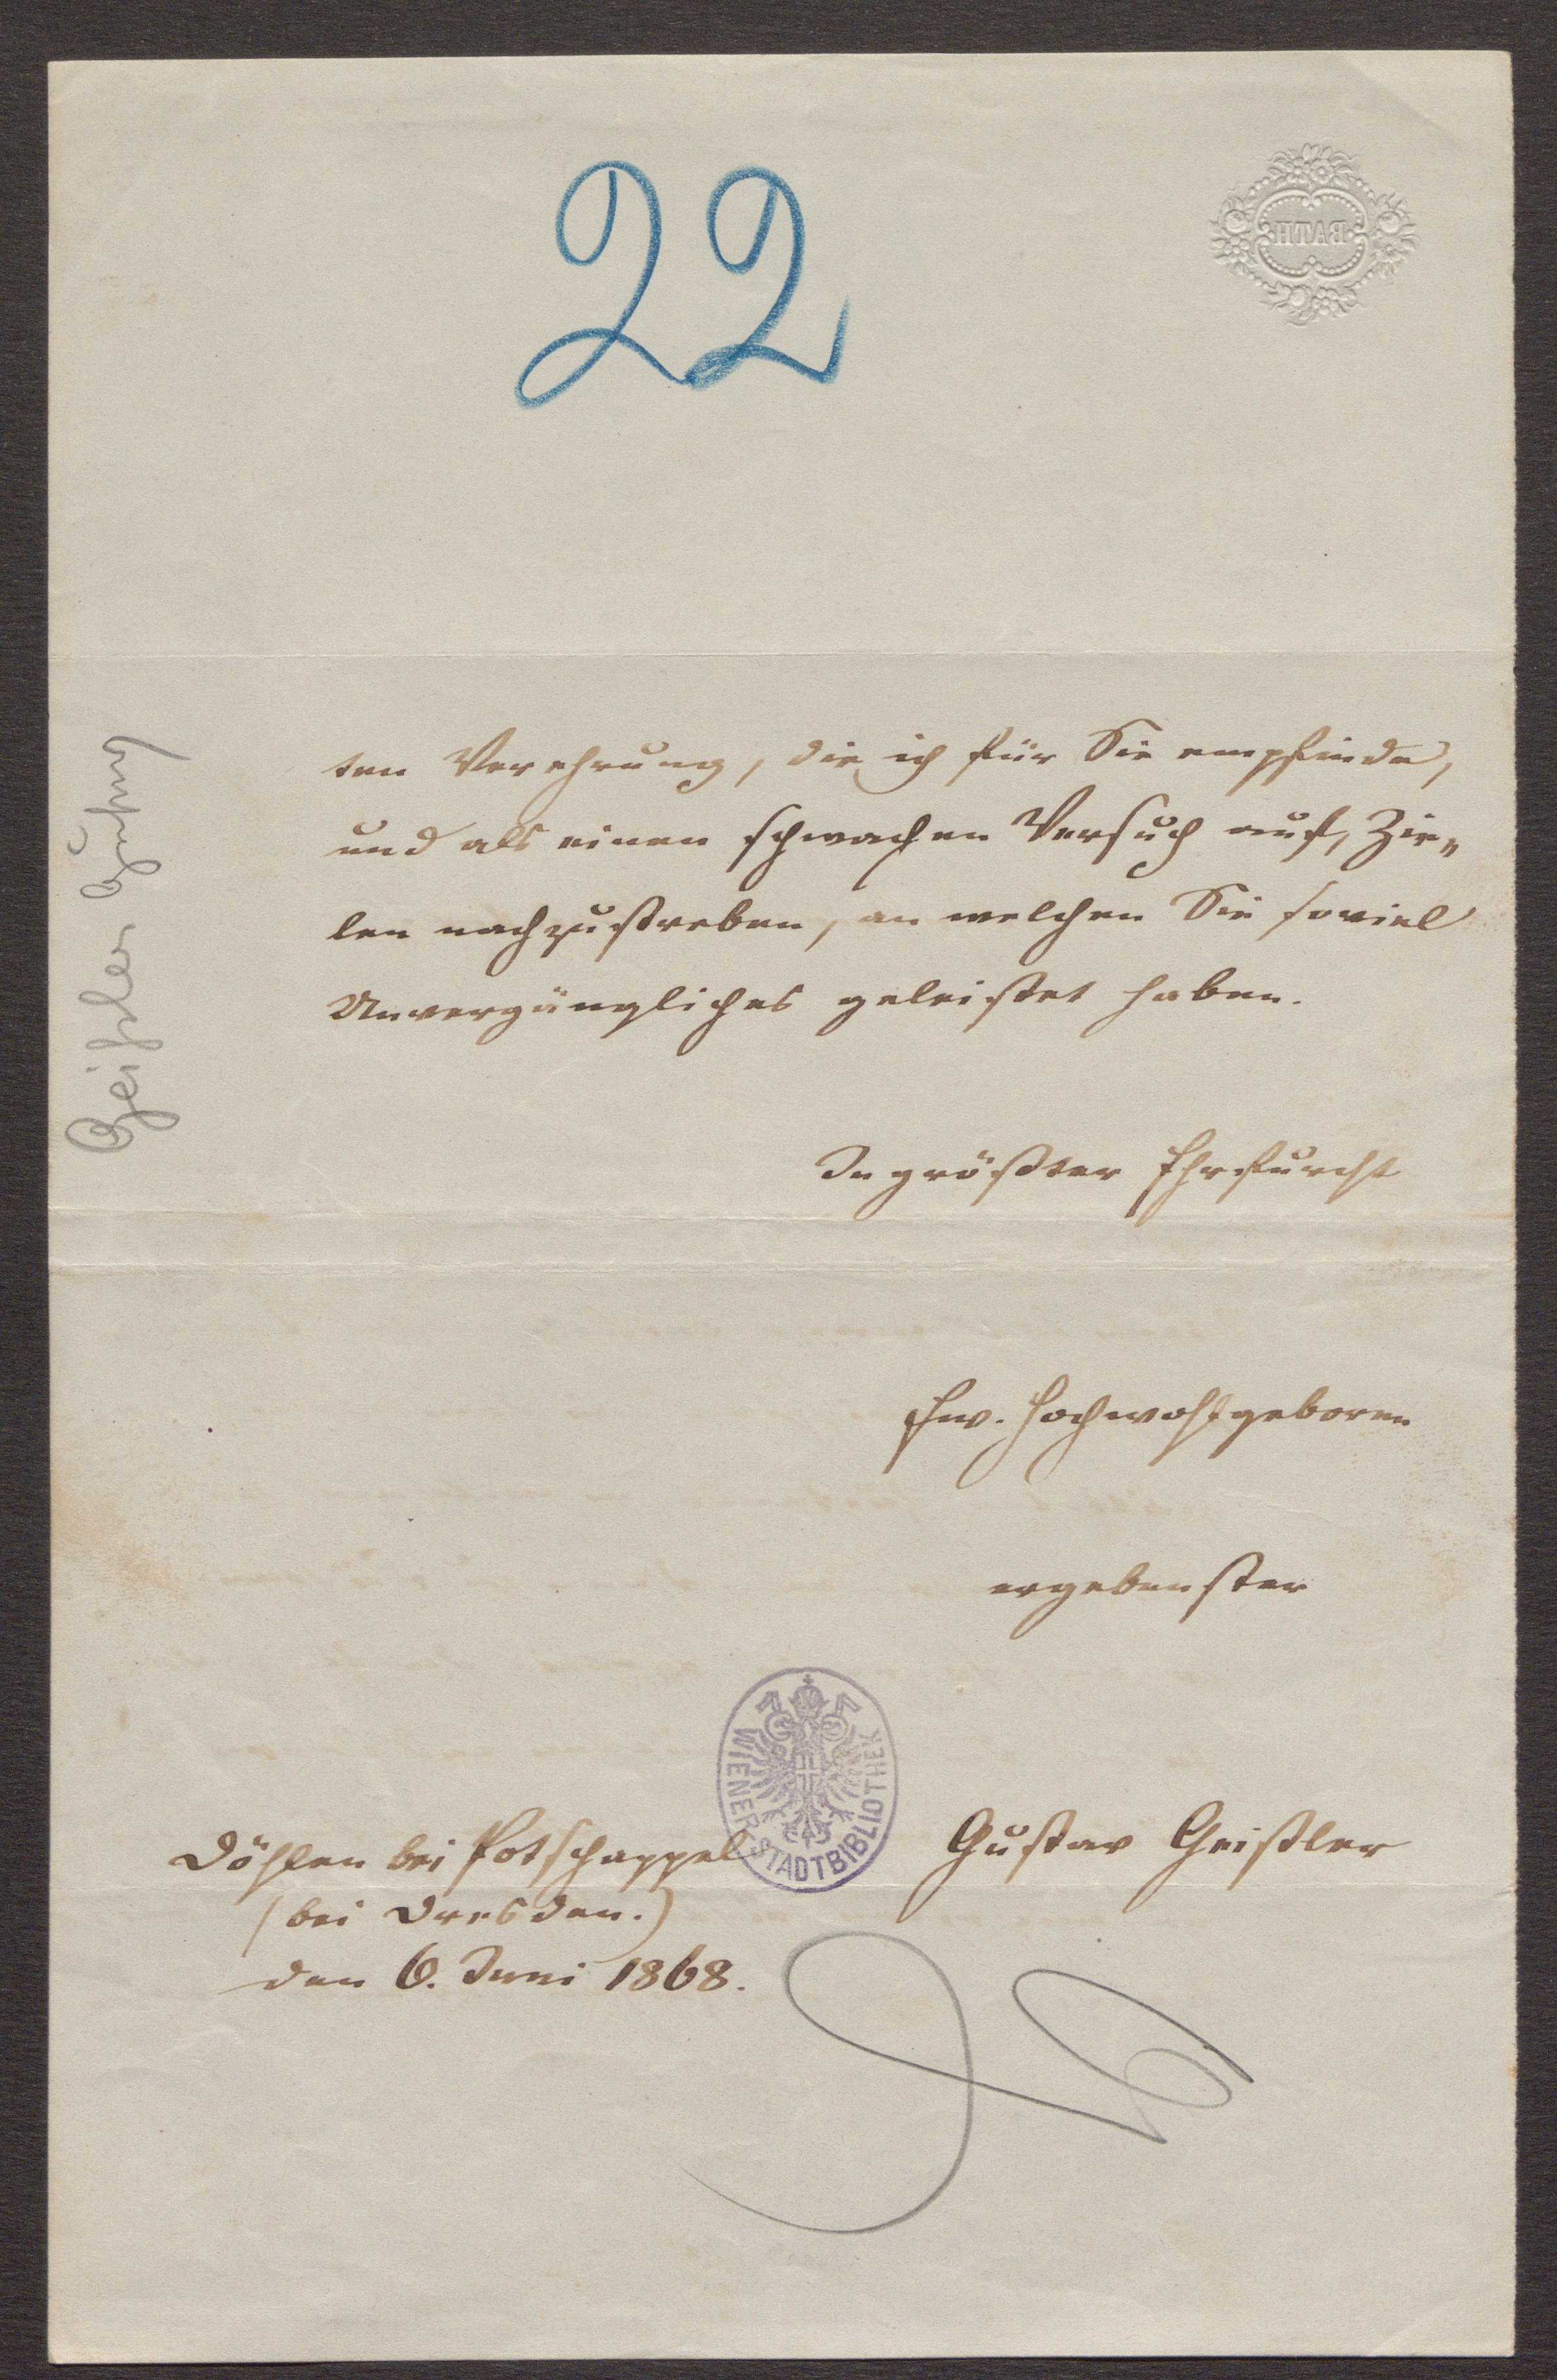 22
BATH
ten Verehrung, die ich für Sie empfinde,
und als einen schwachen Versuch auf, Zie„
len nachzustreben, an welchen Sie soviel
Unvergängliches geleistet haben.
In größter Ehrfurcht
Ew. Hochwohlgeboren
ergebenster
Gustav Geißler
WIENER STADTBIBLIOTHEK
Döhlen bei Potschappel
(bei Dresden.)
den 6. Juni 1868.
Geißler Gustav